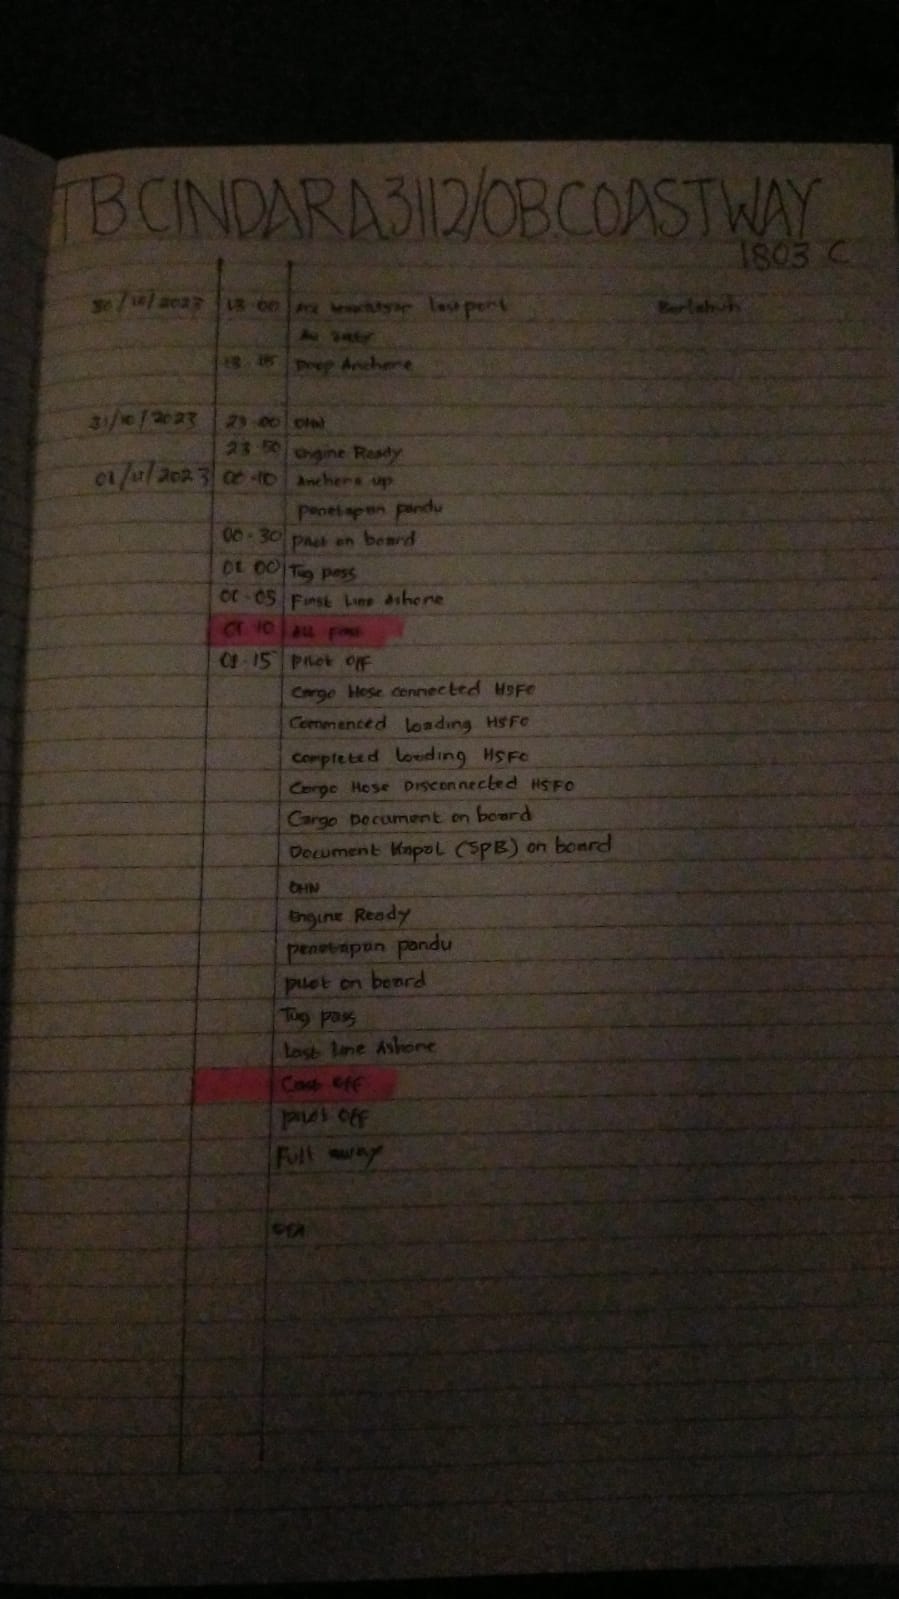 TB CINDARA 3112/OB.COASTWAY
1803 C
30/10/2023 18.00 last port Berlabuh
18.15 Drop Anchore
31/10/2023 23.00 OHN
23.50 Engine Ready
01/11/2023 00.10 Anchore up
penetapan pandu
00.30 Pilot on board
01.00 Tug pass
01.05 First Line Ashore
01.10 All fast
01.15 Pilot OFF
Cargo Hose connected HSFO
Commenced loading HSFO
Completed loading HSFO
Cargo Hose Disconnected HSFO
Cargo Document on board
Document Kapal (SPB) on board
OHN
Engine Ready
penetapan pandu
pilot on board
Tug pass
Last line Ashore
Cast OFF
pilot OFF
Full away